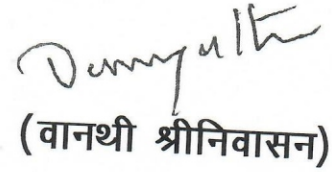 (वानथी श्रीनिवासन)